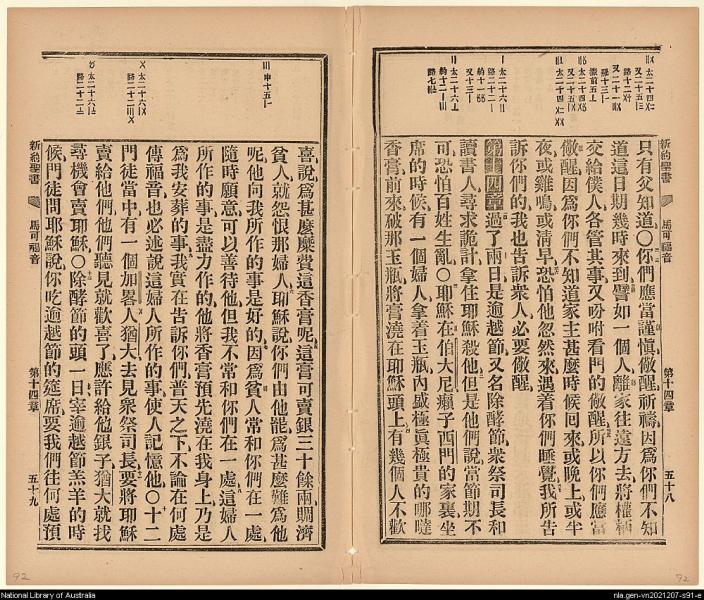 只有父知道〇你們應當謹愼儆醒祈禱因爲你們不知
道這日期幾時來到譬如一個人離家往遠方去將權柄
交給僕人各管其事又吩咐看門的儆醒所以你們應當
儆醒因爲你們不知道家主甚麼時候回來或晚上或半
夜或雞鳴或淸早恐怕他忽然來遇着你們睡覺我所告
訴你們的我也告訴衆人必要儆醒
第十四章過了兩日是逾越節又名除酵節衆祭司長和
讀書人尋求詭計拿住耶穌殺他但是他們說當節期不
可恐怕百姓生亂〇耶穌在伯大尼癩子西門的家裏坐
席的時候有一個婦人拿着玉瓶內盛極眞極貴的哪噠
香膏前來破那玉瓶將膏澆在耶穌頭上有幾個人不歡
新約聖書
馬可福音
第十四章
五十八
喜說爲甚麼糜費這香膏呢這膏可賣銀三十餘兩賙濟
貧人就怨恨那婦人耶穌說你們由他罷爲甚麼難爲他
呢他向我所作的事是好的因爲貧人常和你們在一處
隨時願意可以善待他但我不常和你們在一處這婦人
所作的事是盡力作的他將香膏預先澆在我身上乃是
爲我安葬的事我實在告訴你們普天之下不論在何處
傳福音也必述說這婦人所作的事使人記憶他〇十二
門徒當中有一個加畧人猶大去見衆祭司長要將耶穌
賣給他們他們聽見就歡喜了應許給他銀子猶大就找
尋機會賣耶穌〇除酵節的頭一日宰逾越節羔羊的時
候門徒問耶穌說你吃逾越節的筵席要我們往何處預
新約聖書
馬可福音
第十四章
五十九
92
92
National Library of Australia
nla.gen-vn2021207-s91-e